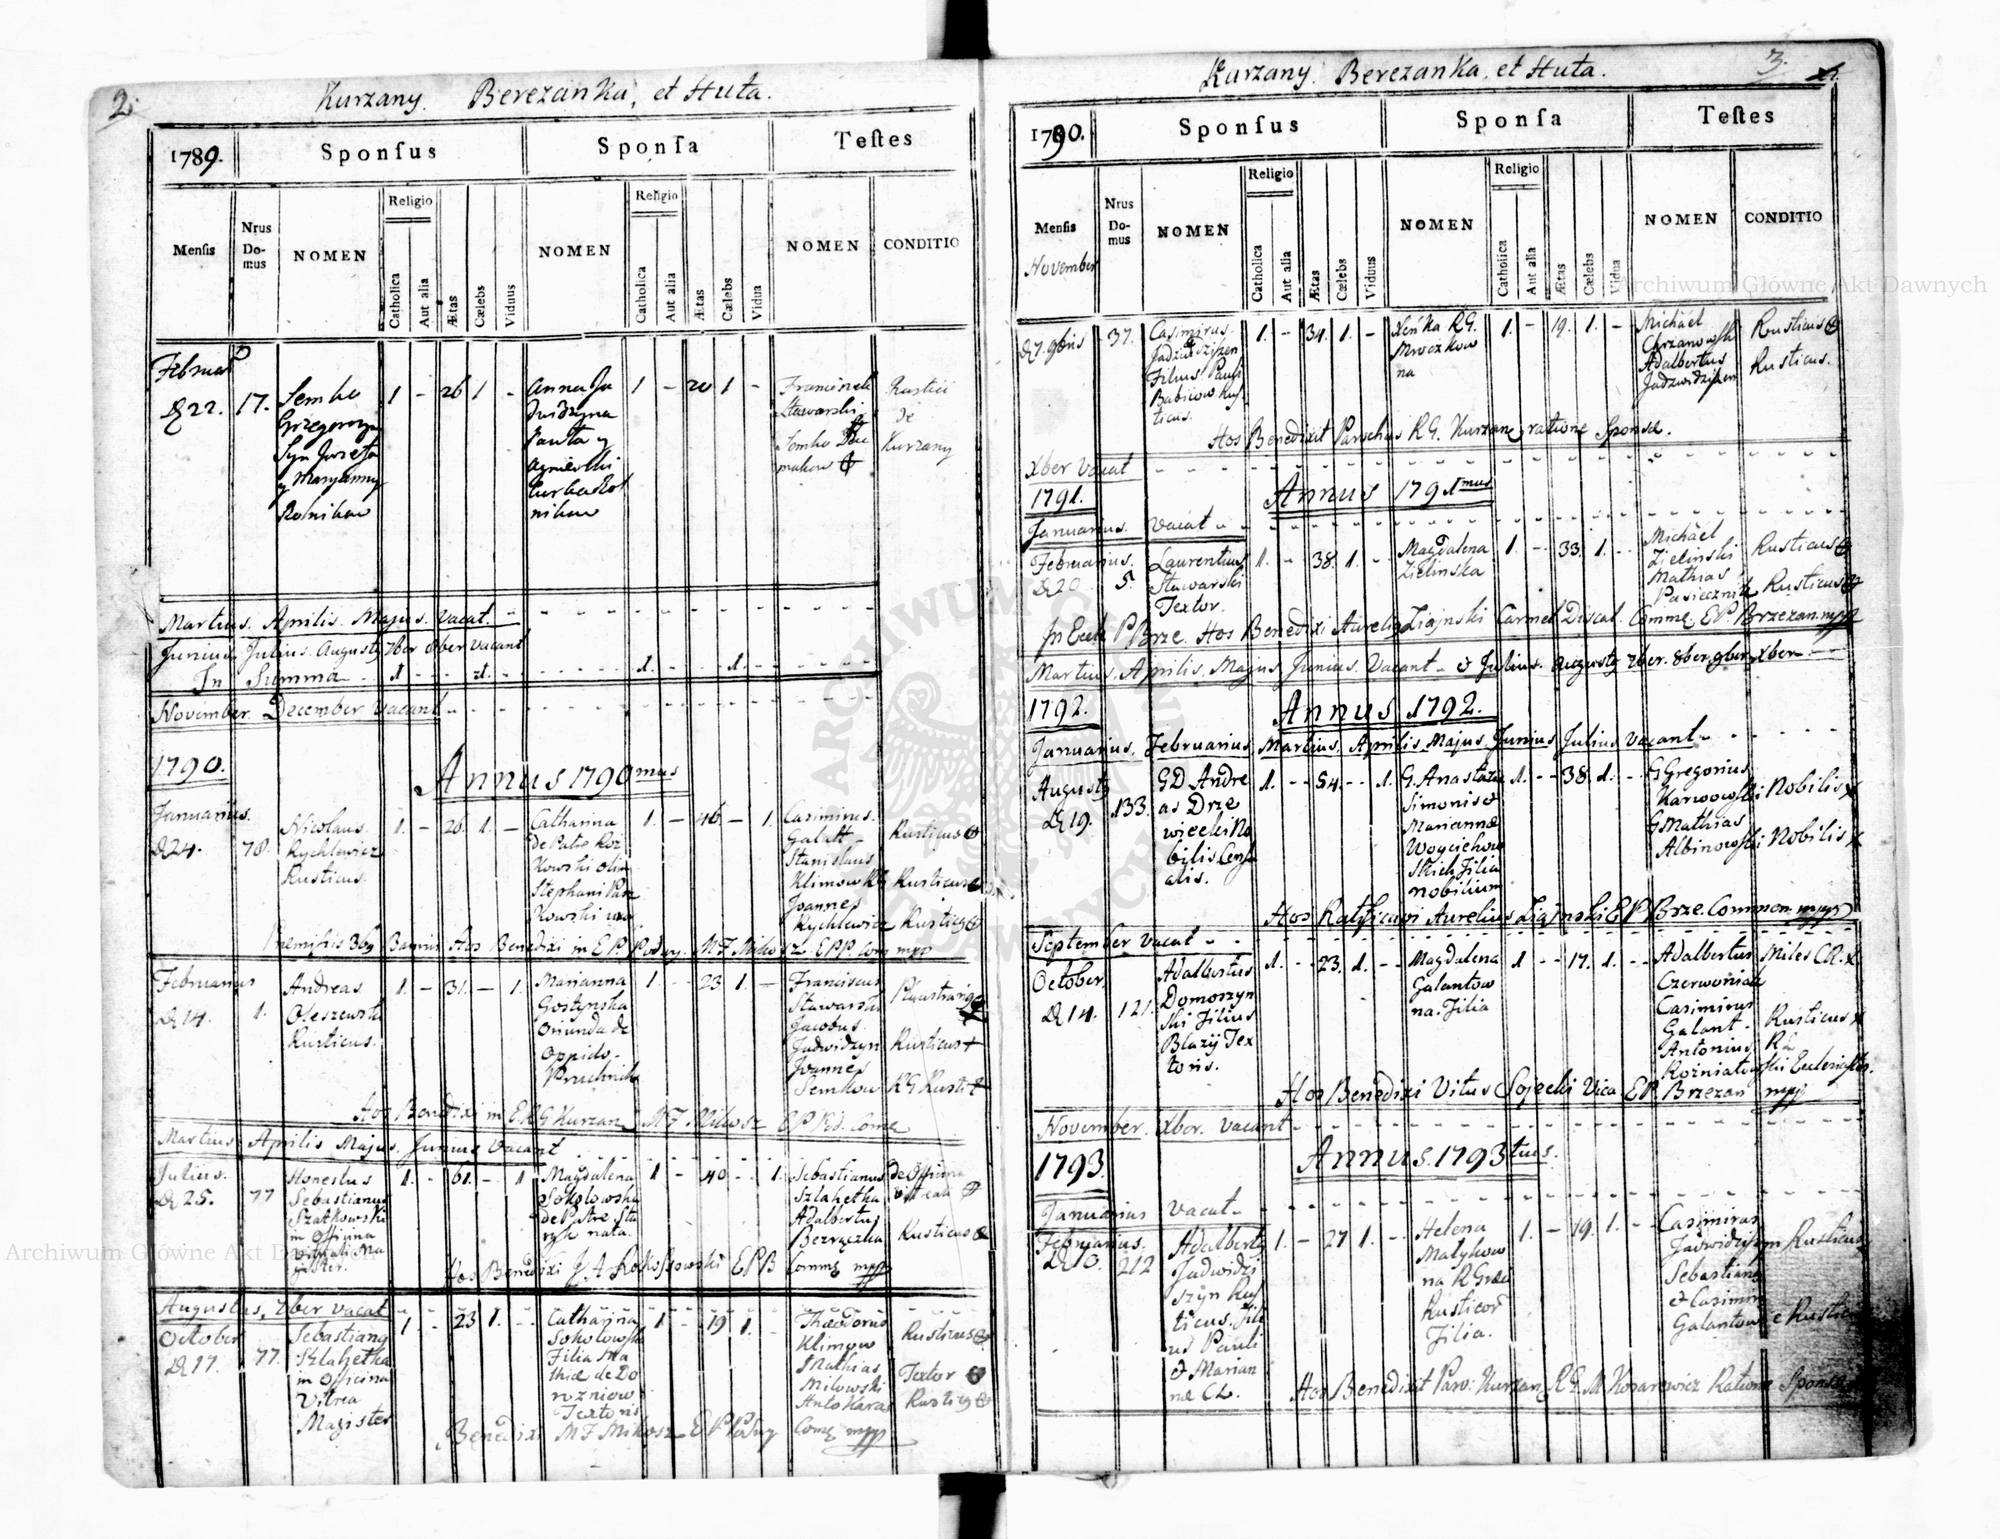 2.
Kurzany. Berezanka, et Huta.
1789. Sponſus Sponſa Teſtes
Menſis Nrus Do-mus NOMEN Religio Catholica Aut alia Ætas Cælebs Viduus NOMEN Religio Catholica Aut alia Ætas Cælebs Vidua NOMEN CONDITIO
Februar
D 22. 17.
Semko
Grzegorzyn
Syn Jozefa
y Maryanny
Rolnikow
1 - 26 1 -
Anna Ja
dwidzyna
Pawła y
Agnieszki
nikow
1 - 20 1 -
Franciszek
Stawarski
Semko
Rustici
de
Kurzany
Martius. Aprilis. Majus. Vacat.
Junius Julius. Augusty 7ber 8ber vacant
In Summa 1 1. 1. 1.
November. December Vacant
1790.
Annus 1790mus
Januarius.
D 24. 78.
Nicolaus
Rychlewicz
Rusticus.
1. - 26. 1. -
Catharina
de Patre Roz
kowski olim
Stephani Pasz
kowski
1. - 46. - 1.
Casimirus
Galatt
Stanislaus
Klimow
Joannes
Rychlewicz
Rusticus
Rusticus
Rusticq
Premissis 3bq Bannis Hos Benedixi in E P. M F Mikosz E P P Com mpp
Februarius
D 14. 1.
Andreas
Oleszewski
Rusticus.
1. - 31. - 1.
Marianna
Gostynska
Oriunda de
Oppido
Pruchnik
1 - 23 1. -
Franciscus
Stawarski
Jacobus
Jadwidzyn
Joannes
Semkow
Rusticus
RG Rusti
Hos Benedixi in E RG Kurzan M F Mikosz E P Pd. Come
Martius Aprilis Majus. Junius Vacant
Julius.
D 25. 77
Honestus
Sebastianus
Szatkowski
in Officina
Vitreali Ma
gister.
1. - 61. - 1
Magdalena
Sokołowska
de Patre Sta
nata.
1 - 40 - 1.
Sebastianus
Szlahetka
Adalbertus
de Officina
vitreali
Rusticus
Hos Benedixi J A Rokossowski E P B Comme mpp
Augustus, 7ber vacat
October
D 17. 77.
Sebastianq
Szlahetka
in Officina
Vitrea
Magister
1 - 23 1. -
Catharina
Sokolowska
Filia Ma
thiæ de Do
rozniow
Textoris
1 - 19 1. -
Theodorus
Klimow
Mathias
Milowski
Anto Karas
Rusticus
Textor
Rusticq
Benedixi M F Mikosz E P Come mpp
3.
Kurzany. Berezanka, et Huta.
1790. Sponſus Sponſa Teſtes
Menſis Nrus Do-mus NOMEN Religio Catholica Aut alia Ætas Cælebs Viduus NOMEN Religio Catholica Aut alia Ætas Cælebs Vidua NOMEN CONDITIO
November
D 7. 9bris 37.
Casimirus
Jadzwidziszen
Filius Pauli
Babiiow Rus
ticus.
1. - 34. 1. -
Xeńka RG.
Mroczkow
na
1. - 19. 1. -
Michael
Chrzanowski
Adalbertus
Jadzwidziszen
Rusticus
Rusticus.
Hos Benedixit Parochus RG. Kurzan ratione Sponsæ.
Xber Vacat
1791. Annus 1791mus
Januarius. Vacat
Februarius.
D 20 5.
Laurentius
Stawarski
Textor.
1. - 38. 1. -
Magdalena
Zielinska
1. - 33. 1. -
Michael
Zielinski
Mathias
Pasiecznik
Rusticus
Rusticus
In Eccle P Brze. Hos Benedixi Aureliq Ligiński Carmel Discal. Comme. E P. Brzezan. mpp
Martius, Aprilis, Majus Junius. Vacant & Julius. Augusty 7ber. 8ber, 9ber, Xber
1792. Annus 1792.
Januarius. Februarius Martius. Aprilis. Majus. Junius Julius Vacant
Augusty
D 19. 133.
GD Andre
as Drze
wiecki No
bilis Cens
alis.
1. - 54. - 1.
G. Anastazia
Simonis &
Mariannæ
Woyciehow
skich Filia
nobilium
1. - 38. 1. -
G Gregorius
Karwowski
G Mathias
Albinowski
Nobilis
Nobilis
Hos Ratificavi Aurelius Liginski E P Brze. Commen. mpp
September Vacat
October
D 14. 121.
Adalbertus
Domoszyn
ski Filius
Blazij Tex
toris.
1. - 23. 1. -
Magdalena
Galantow
na. Filia
1 - 17. 1. -
Adalbertus
Czerwoniak
Casimirus
Galant
Antonius
Rozniatowski
Miles CR.
Rusticus
Hos Benedixi Vitus Sojecki Vica E P. Brzezan mpp
November. Xber. Vacant
1793. Annus. 1793tius.
Januarius Vacat
Februarius.
D 10. 212
Adalberty
Jadwidzi
szyn Rus
ticus. Fili
us Pauli
& Marian
næ CL.
1. - 27 1. -
Helena
Matykow
na R Græc
Rusticor
Filia.
1. - 19. 1. -
Casimirus
Jadwidzyszyn
Sebastianq
& Casimirq
Galantow
Rusticus
Hos Benedixit Paro. Kurzan. RG. M Kosarewicz Ratione Sponsæ
Archiwum Główne Akt Dawnych
Archiwum Główne Akt Dawnych
ARCHIWUM GŁÓWNE AKT DAWNYCH